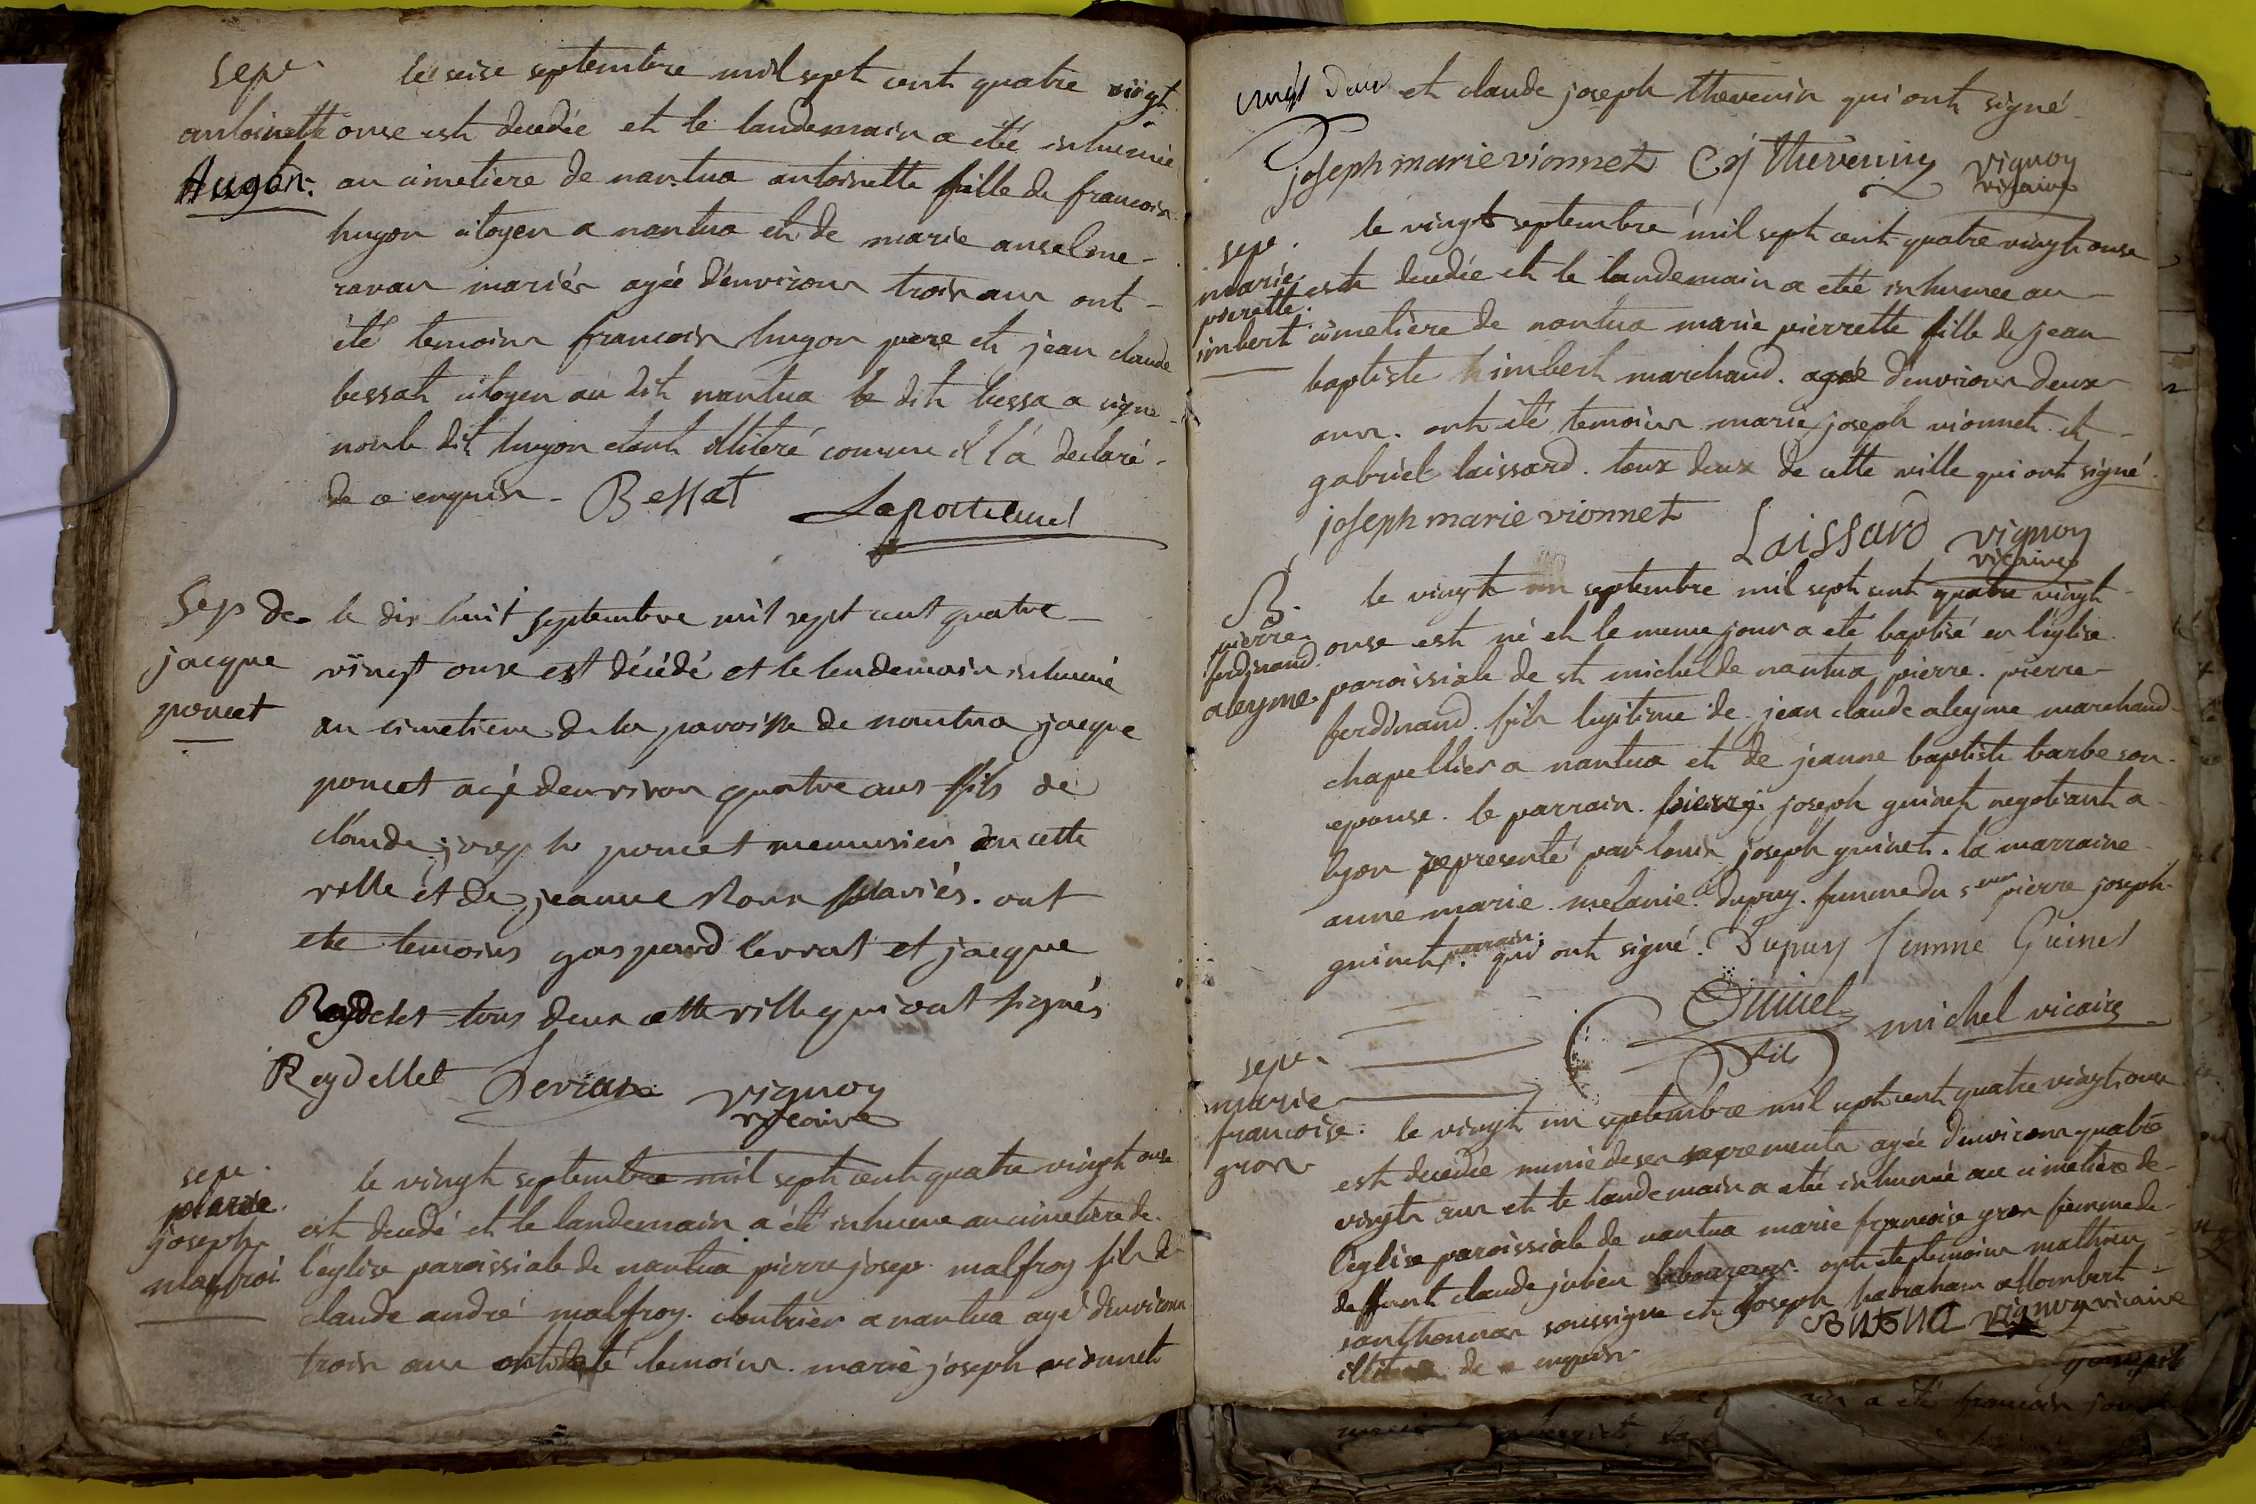 sepr
antoinette
hugon.
le seise septembre mil sept cent quatre vingt
onse est decedée et le landemain a été inhumée
au cimetiere de nantua antoinette fille de francois
hugon citoyen a nantua et de marie anselme
ravau mariés agée d'environ trois ans ont
été temoins francois hugon pere et jean claude
bessat citoyen au dit nantua le dit bessa a signé
non le dit hugon etant illiteré comme il l'a declaré
de ce enquis - Bessat
Sep de
jacque
poncet
le dix huit septembre mil sept cent quatre
vingt onse est décédé et le lendemain inhumé
au cimetiere de la paroisse de nantua jacque
poncet agé denviron quatre ans fils de
claude joseph poncet menuisier en cette
ville et de jeanne mariés. ont
ete temoins gaspard levrat et jacque
Reydelet tous deux cette ville qui ont signés
Reydellet Levrat vignoy
vicaire
sepr.
pierre
joseph
malfroi
le vingt septembre mil sept cent quatre vingt onse
est decedé et le landemain a été inhumé au cimetiere de
l'eglise paroissiale de nantua pierre josep malfroy fils de
claude andré malfroy. cloutrier a nantua agé d'environ
trois ans ont été temoins. marie joseph vionnet
vingt deux et claude joseph thevenin qui ont signé
joseph marie vionnet C j thévenin vignoy
vicaire
sepr.
marie
pierette
imbert
le vingt septembre mil sept cent quatre vingt onse
est decedée et le landemain a eté inhumee au
cimetiere de nantua marie pierrette fille de jean
baptiste himbert marchand. agée d'environ deux
ans. ont été temoins marie joseph vionnet et
gabriel laissard. tous deux de cette ville qui ont signé.
joseph marie vionnet Laissard vignoy
vicaire
B.
pierre
ferdinand
aleyme.
le vingt un septembre mil sept cent quatre vingt
onse est né et le meme jour a eté baptisé en l'église
paroissiale de st michel de nantua pierre. pierre
ferdinand. fils legitime de jean claude aleyme marchand
chapellier a nantua et de jeanne baptiste barbe son
epouse. le parrain. pierre joseph guinet negotiant a
lyon representé par louis joseph guinet. la marraine
anne marie melanie dupuy. femme du sieur pierre joseph
guinet parrain. qui ont signé. Dupuy femme Guinet
Guinet fils michel vicaire
sepr.
marie
francoise
gron
le vingt un septembre mil sept cent quatre vingt onse
est decedée munie de ses sacrements agée d'environ quatre
vingts ans et le landemain a eté inhumée au cimetière de
l'eglise paroissiale de nantua marie francoise gron femme de
deffunt claude julien ont ete temoins mathieu
santhonnax soussigné et joseph habraham allombert
de ce enquis. vignoy vicaire